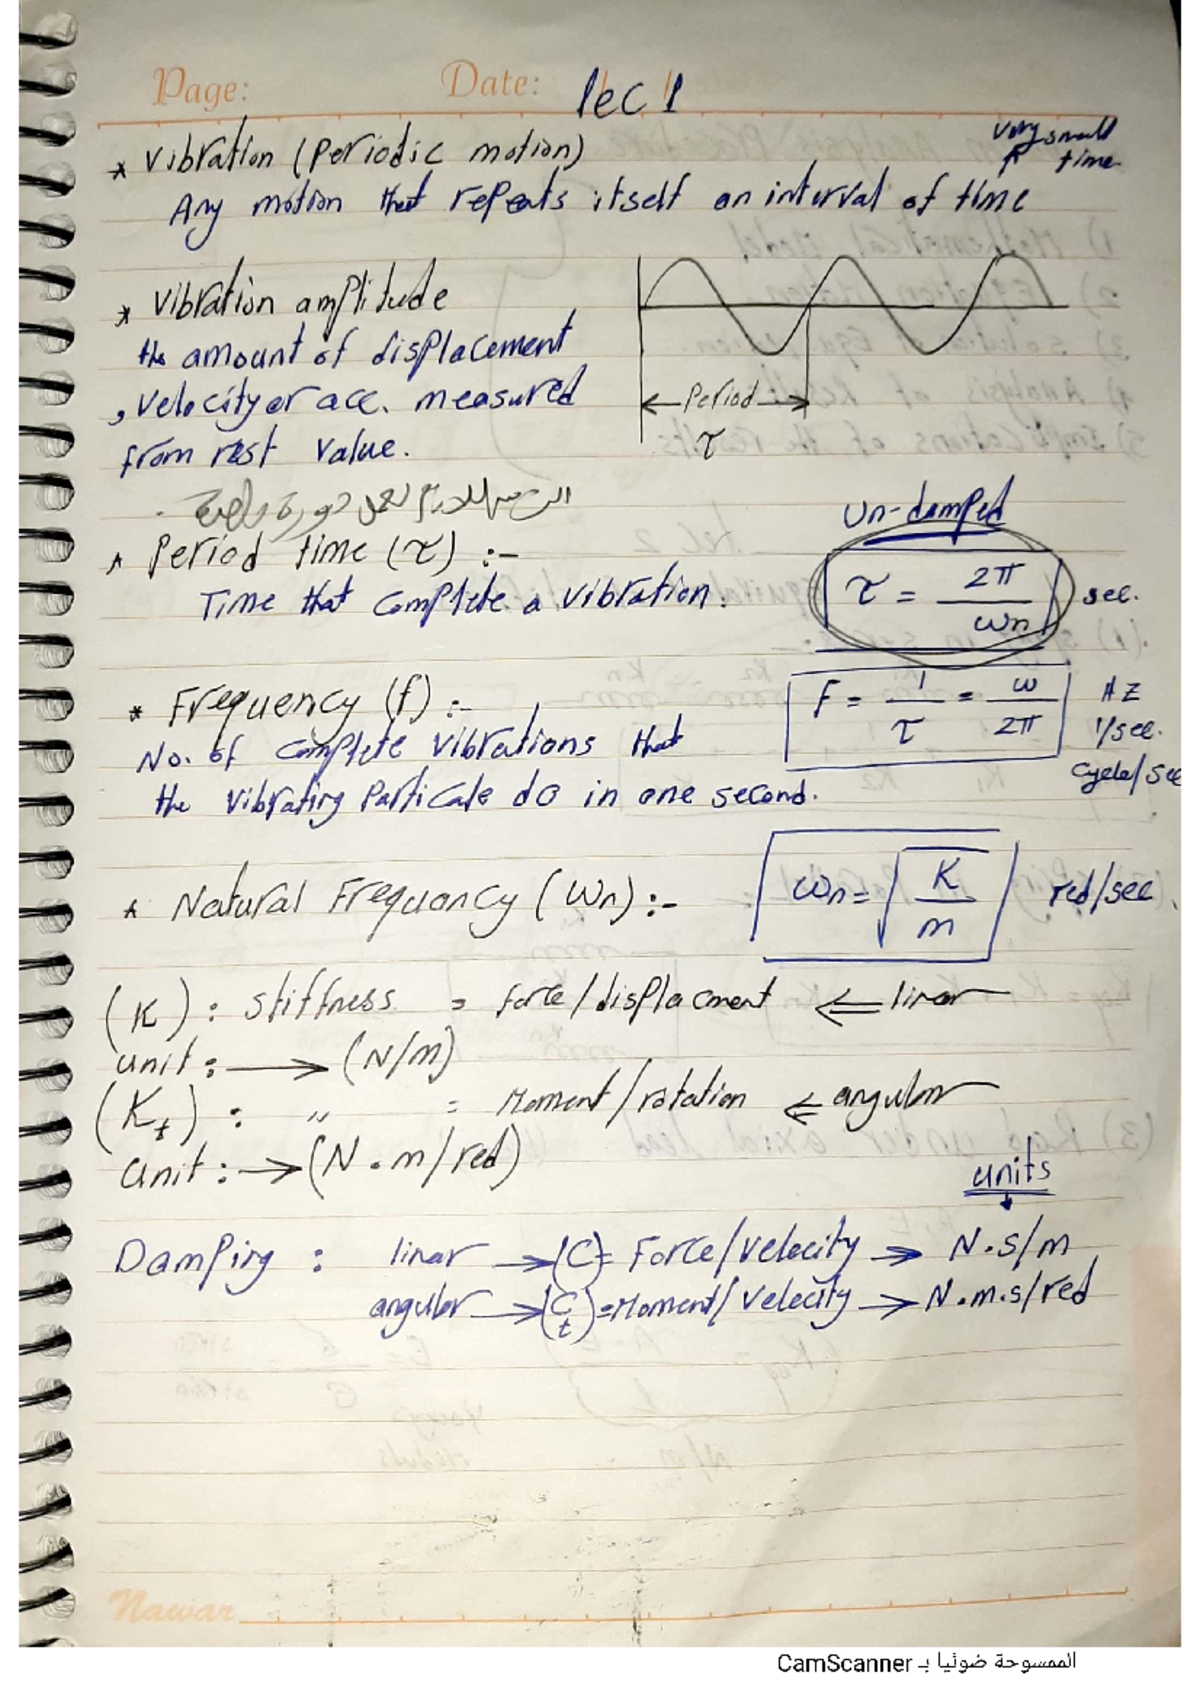 Page: Date: lec 1
* Vibration (Periodic motion)
very small time
Any motion that repeats itself an interval of time
* Vibration amplitude
the amount of displacement
, velocity or acc. measured
from rest value.
Period
τ
* Period time (τ) :-
Time that complete a vibration.
Un-damped
τ = 2π / ωn sec.
* Frequency (f) :-
No. of complete vibrations that
the vibrating Particale do in one second.
F = 1/τ = ω/2π HZ
1/sec.
cycle/sec
* Natural Frequancy (ωn) :-
ωn = √(K/m) red/sec
(K) : stiffness = force/displacment ⇐ linar
unit : → (N/m)
(Kt) : " = Moment/rotation ⇐ angular
unit : → (N.m/red)
units
Damping : linar → (C) = Force/velocity → N.s/m
angular → (Ct) = Moment/velocity → N.m.s/red
Nawar
الممسوحة ضوئيا بـ CamScanner